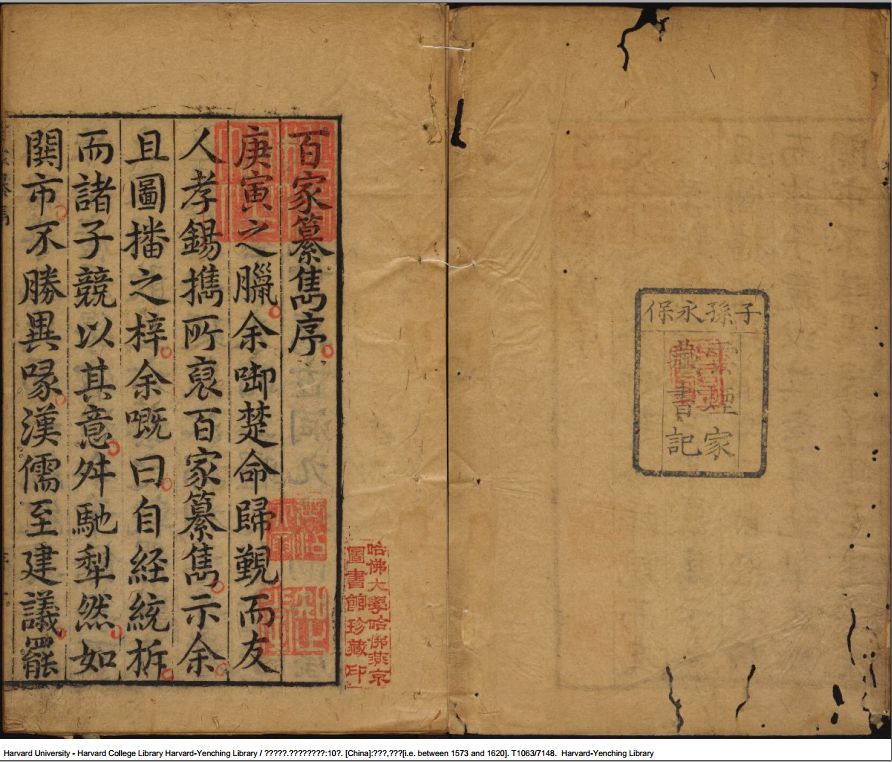 子孫永保
雲煙家
藏書記
哈佛大學哈佛燕京
圖書館珍藏印
百家纂雋序
庚寅之臘余啣楚命歸覲而友
人孝錫擕所裒百家纂雋示余
且圖播之梓余嘅曰自經統拆
而諸子競以其意舛馳犁然如
閧市不勝異喙漢儒至建議罷
Harvard University - Harvard College Library Harvard-Yenching Library / ?????.????????:10?. [China]:???,???[i.e. between 1573 and 1620]. T1063/7148. Harvard-Yenching Library